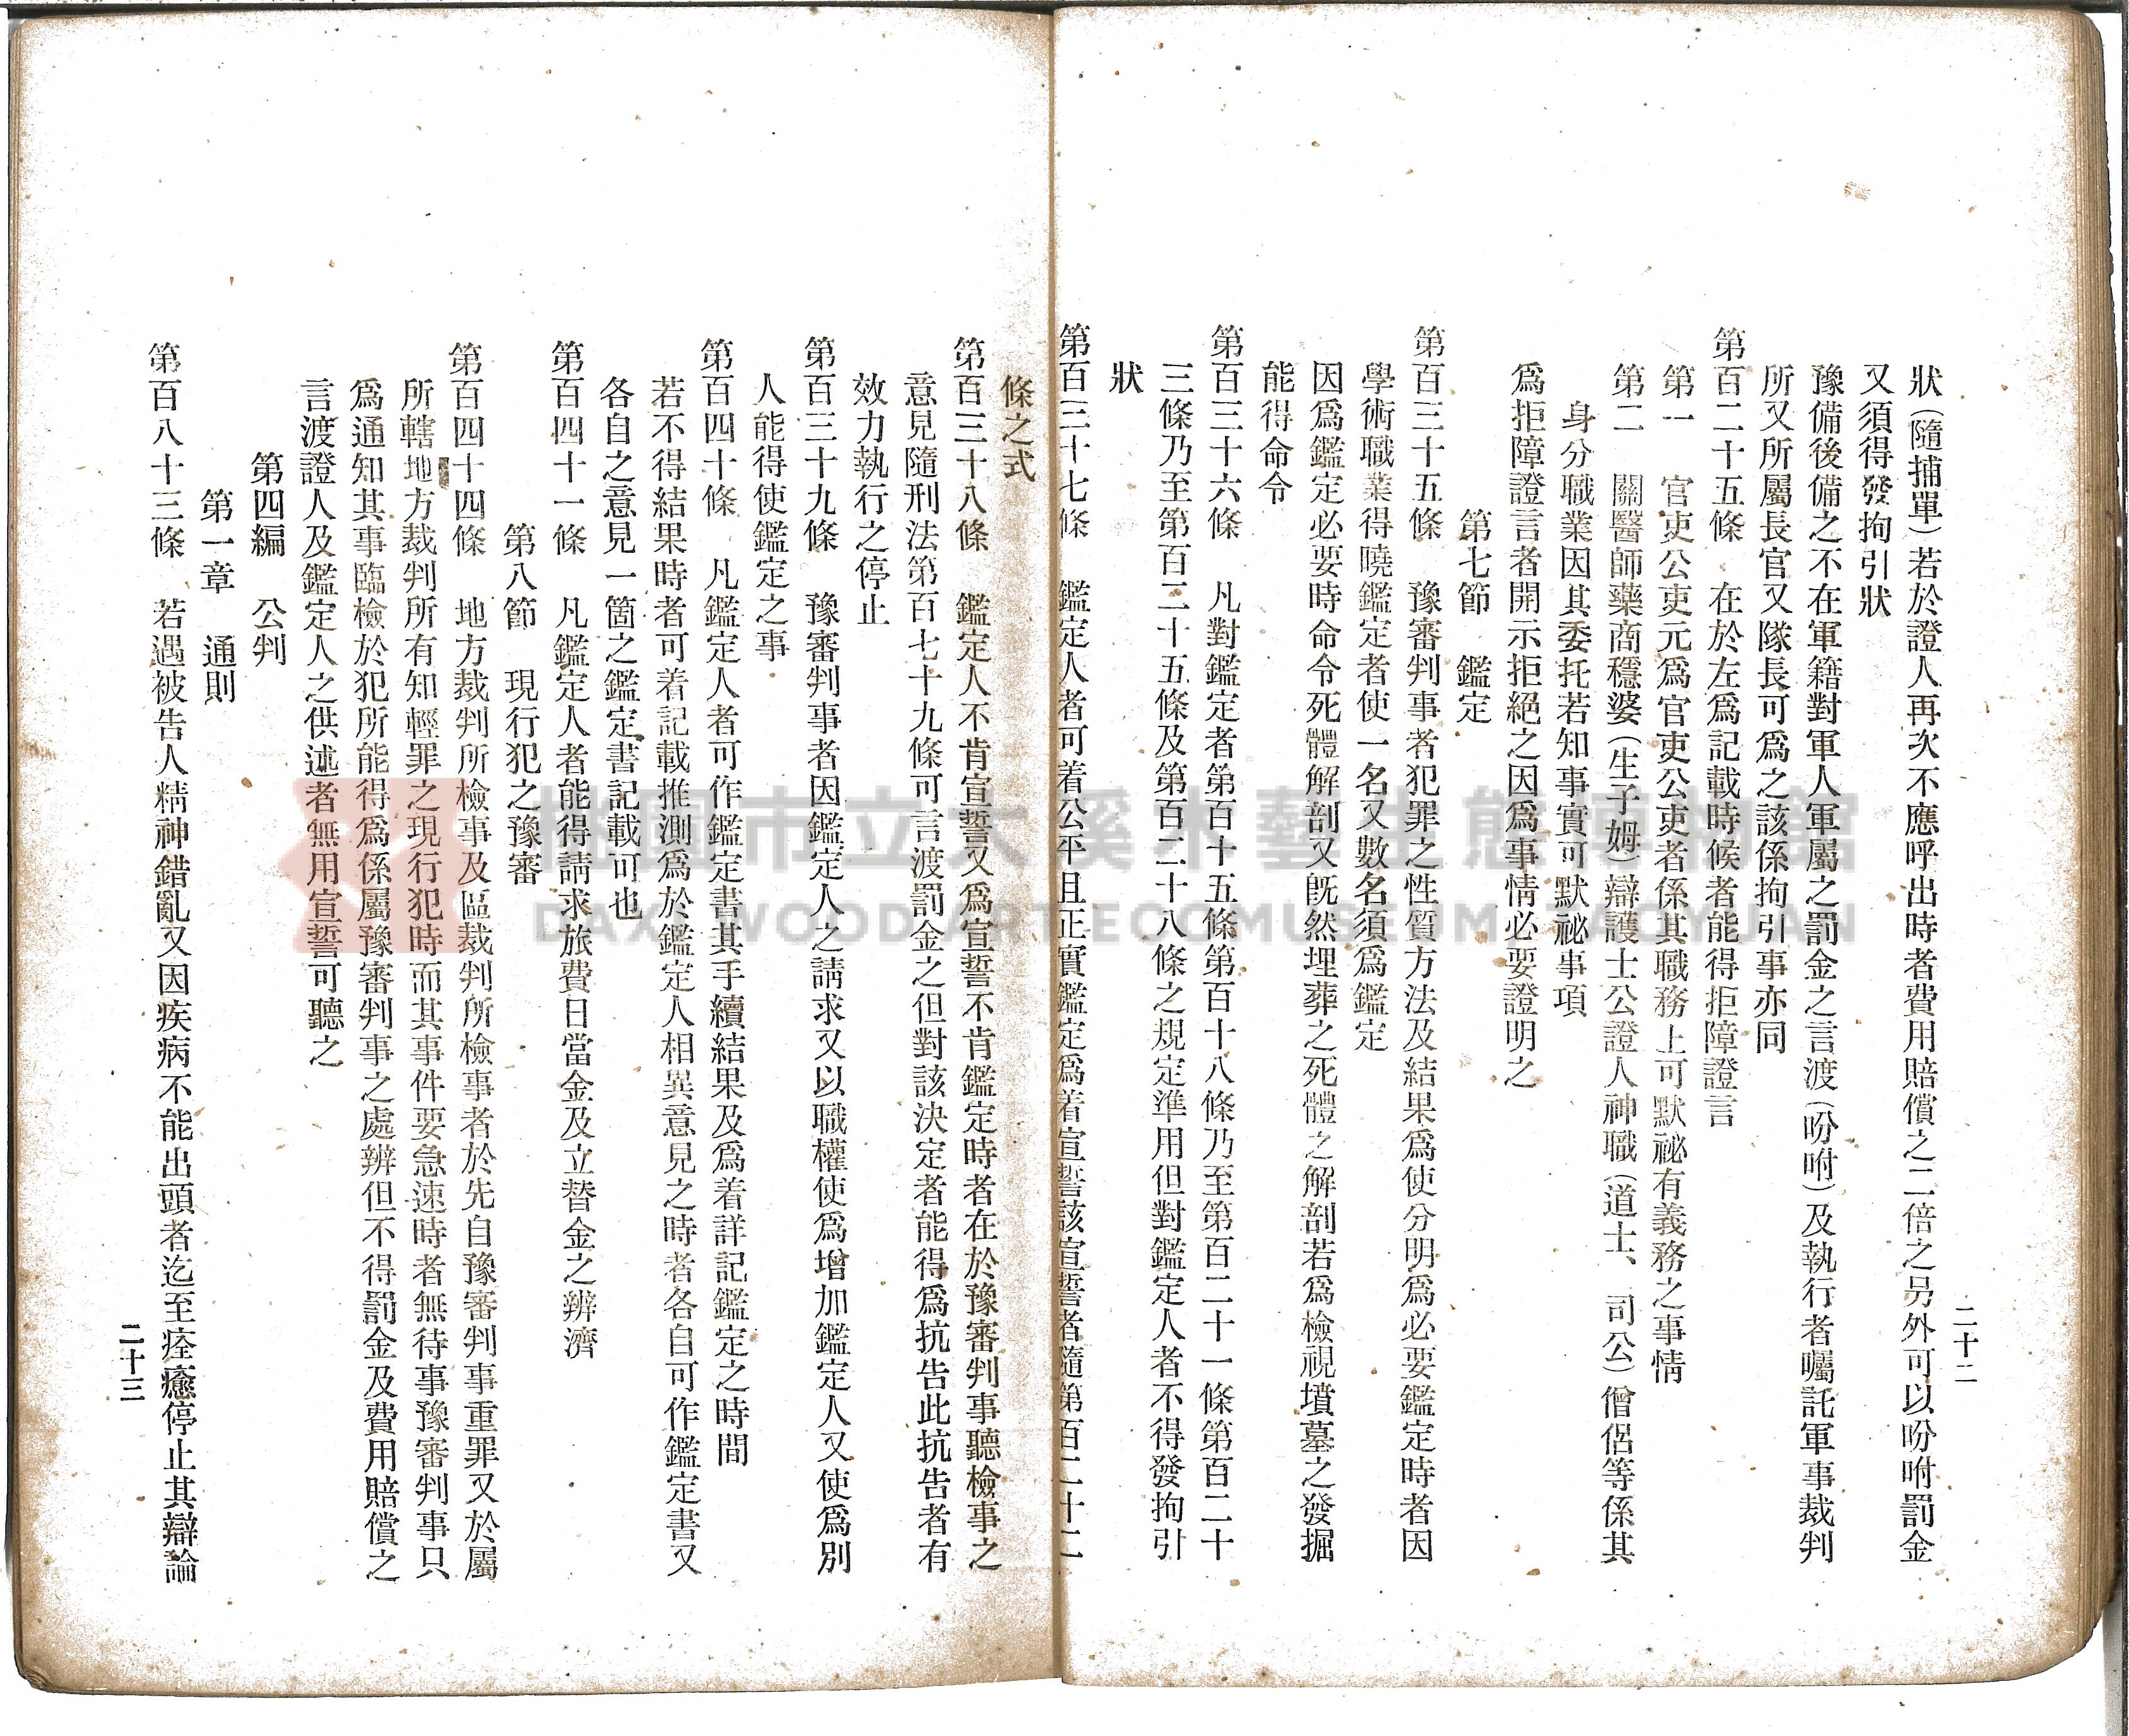 二十二
狀(隨捕單)若於證人再次不應呼出時者費用賠償之二倍之另外可以吩咐罰金
又須得發拘引狀
豫備後備之不在軍籍對軍人軍屬之罰金之言渡(吩咐)及執行者囑託軍事裁判
所又所屬長官又隊長可爲之該係拘引事亦同
第百二十五條　在於左爲記載時候者能得拒障證言
第一　官吏公吏元爲官吏公吏者係其職務上可默祕有義務之事情
第二　關醫師藥商穩婆(生子姆)辯護士公證人神職(道士、司公)僧侶等係其
身分職業因其委托若知事實可默祕事項
爲拒障證言者開示拒絕之因爲事情必要證明之
第七節　鑑定
第百三十五條　豫審判事者犯罪之性質方法及結果爲使分明爲必要鑑定時者因
學術職業得曉鑑定者使一名又數名須爲鑑定
因爲鑑定必要時命令死體解剖又旣然埋葬之死體之解剖若爲檢視墳墓之發掘
能得命令
第百三十六條　凡對鑑定者第百十五條第百十八條乃至第百二十一條第百二十
三條乃至第百二十五條及第百二十八條之規定準用但對鑑定人者不得發拘引
狀
第百三十七條　鑑定人者可着公平且正實鑑定爲着宣誓該宣誓者隨第百二十二
條之式
第百三十八條　鑑定人不肯宣誓又爲宣誓不肯鑑定時者在於豫審判事聽檢事之
意見隨刑法第百七十九條可言渡罰金之但對該決定者能得爲抗告此抗告者有
效力執行之停止
第百三十九條　豫審判事者因鑑定人之請求又以職權使爲增加鑑定人又使爲別
人能得使鑑定之事
第百四十條　凡鑑定人者可作鑑定書其手續結果及爲着詳記鑑定之時間
若不得結果時者可着記載推測爲於鑑定人相異意見之時者各自可作鑑定書又
各自之意見一箇之鑑定書記載可也
第百四十一條　凡鑑定人者能得請求旅費日當金及立替金之辨濟
第八節　現行犯之豫審
第百四十四條　地方裁判所檢事及區裁判所檢事者於先自豫審判事重罪又於屬
所轄地方裁判所有知輕罪之現行犯時而其事件要急速時者無待事豫審判事只
爲通知其事臨檢於犯所能得爲係屬豫審判事之處辨但不得罰金及費用賠償之
言渡證人及鑑定人之供述者無用宣誓可聽之
第四編　公判
第一章　通則
第百八十三條　若遇被告人精神錯亂又因疾病不能出頭者迄至痊癒停止其辯論
二十三
桃園市立大溪木藝生態博物館
DAXI WOOD ART ECOMUSEUM, TAOYUAN